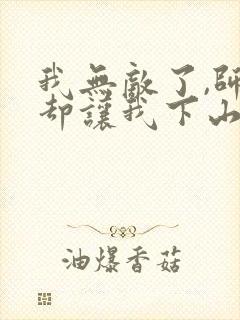 我無敵了,師
却讓我下山
油爆香菇